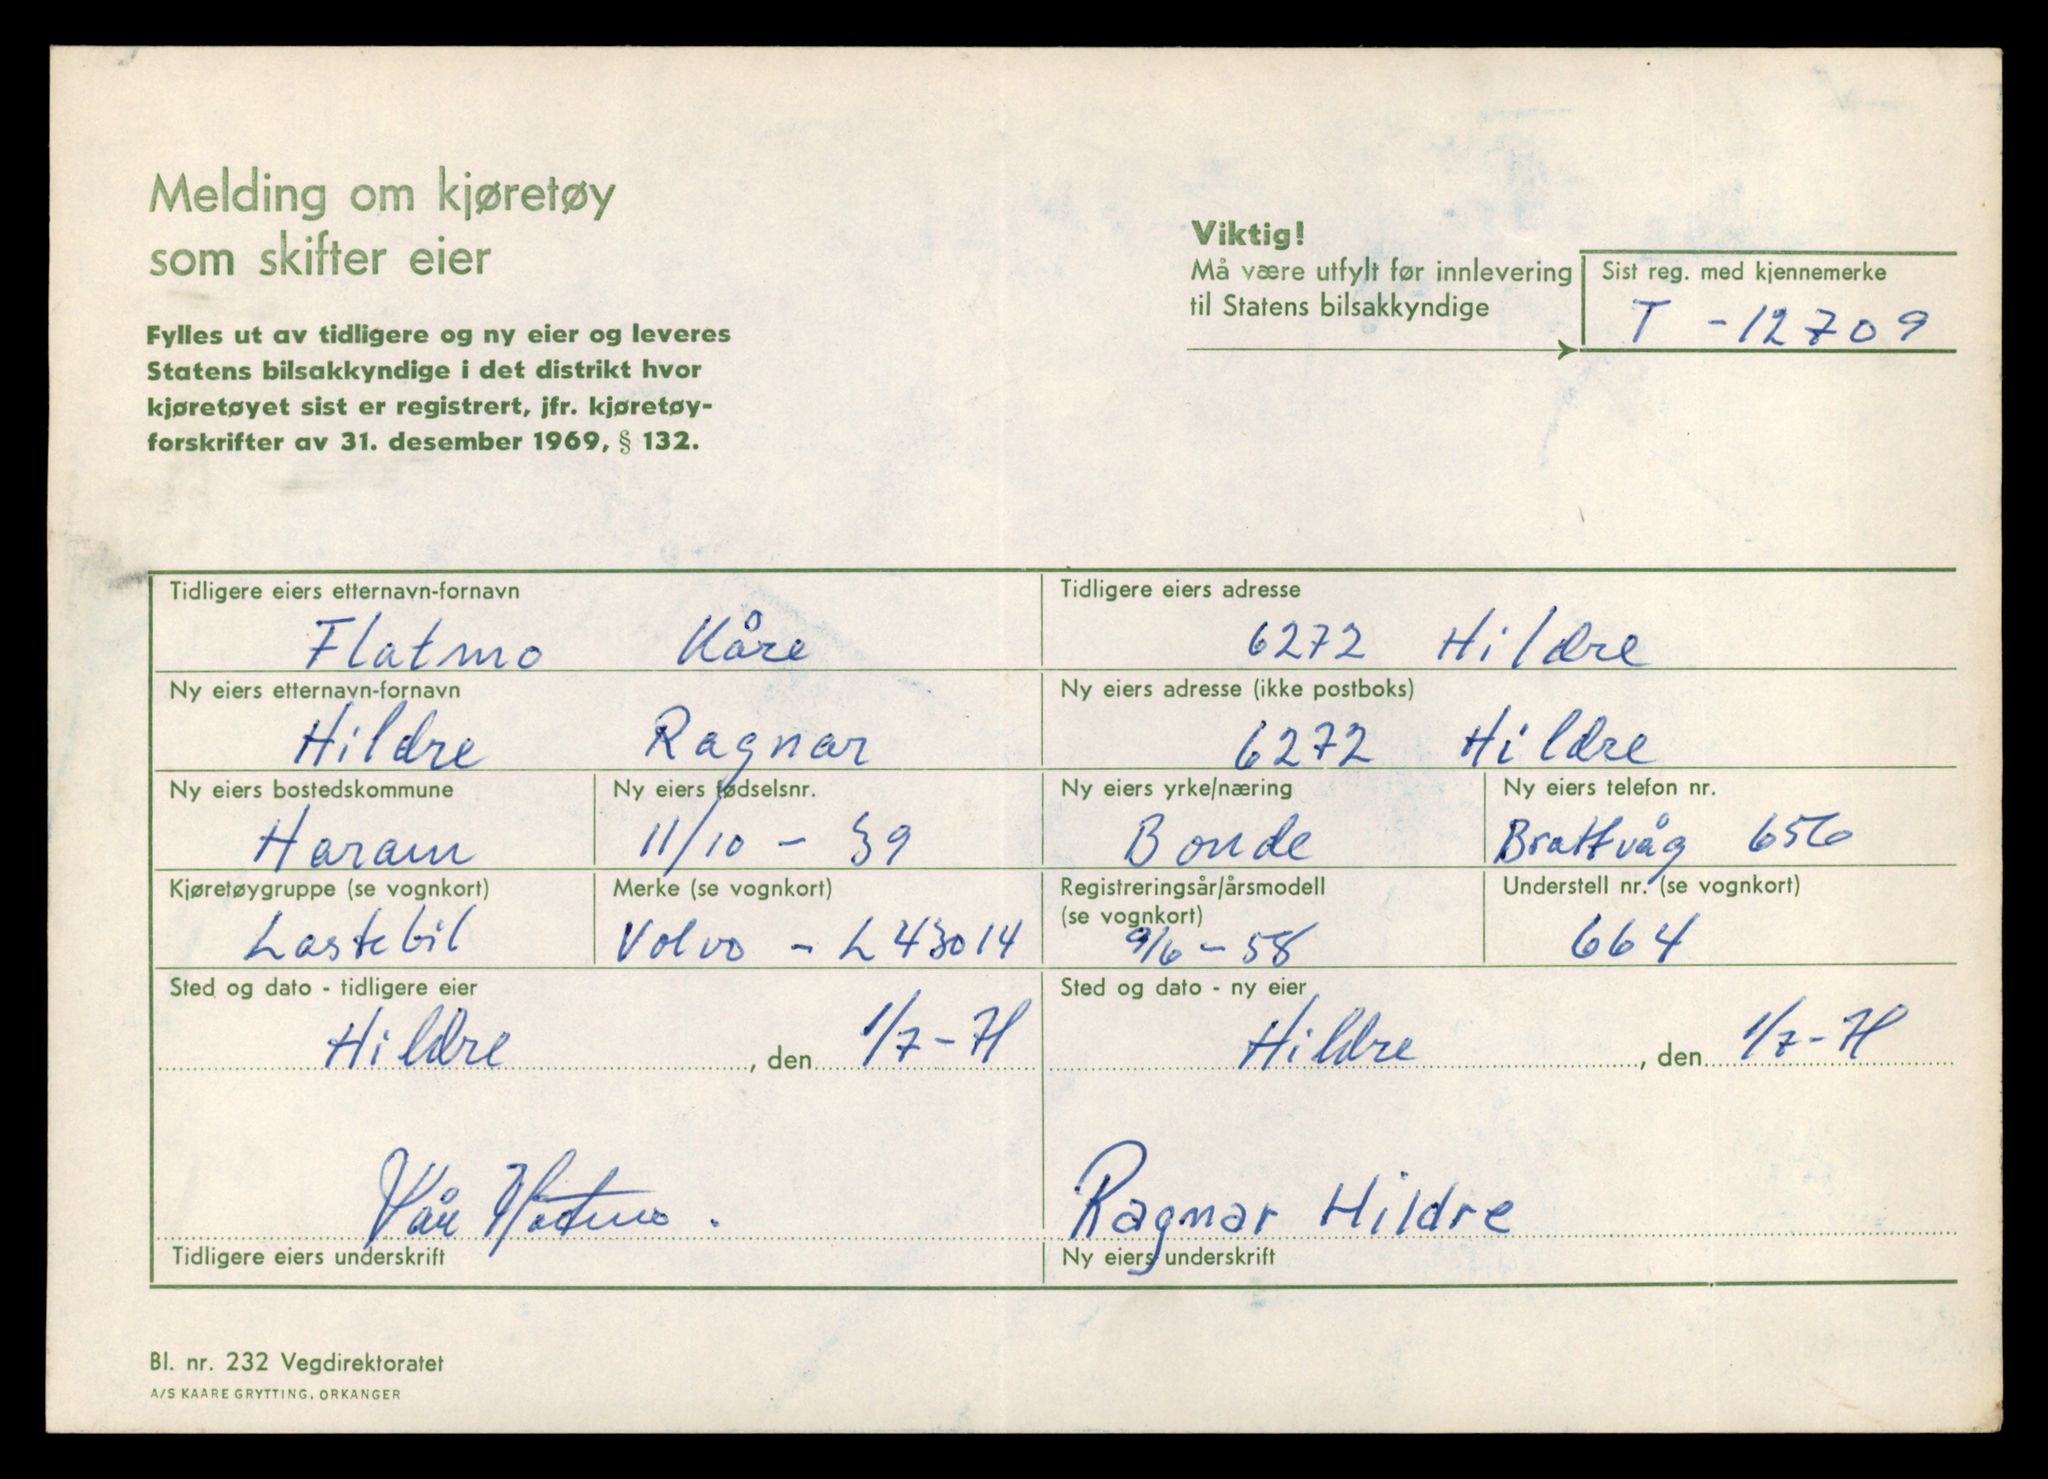 Melding om kjøretøy
som skifter eier
Fylles ut av tidligere og ny eier og leveres
Statens bilsakkyndige i det distrikt hvor
kjøretøyet sist er registrert, jfr. kjøretøy-
forskrifter av 31. desember 1969, § 132.
Viktig!
Må være utfylt før innlevering
til Statens bilsakkyndige
Sist reg. med kjennemerke
T - 12709
Tidligere eiers etternavn-fornavn
Flatmo Kåre
Tidligere eiers adresse
6272 Hildre
Ny eiers etternavn-fornavn
Hildre Ragnar
Ny eiers adresse (ikke postboks)
6272 Hildre
Ny eiers bostedskommune
Haram
Ny eiers fødselsnr.
11/10 - 39
Ny eiers yrke/næring
Bonde
Ny eiers telefon nr.
Brattvåg 656
Kjøretøygruppe (se vognkort)
Lastebil
Merke (se vognkort)
Volvo - L43014
Registreringsår/årsmodell
(se vognkort)
9/6 - 58
Understell nr. (se vognkort)
664
Sted og dato - tidligere eier
Hildre, den 1/7-71
Sted og dato - ny eier
Hildre, den 1/7-71
Kåre Flatmo.
Tidligere eiers underskrift
Ragnar Hildre
Ny eiers underskrift
Bl. nr. 232 Vegdirektoratet
A/S KAARE GRYTTING, ORKANGER